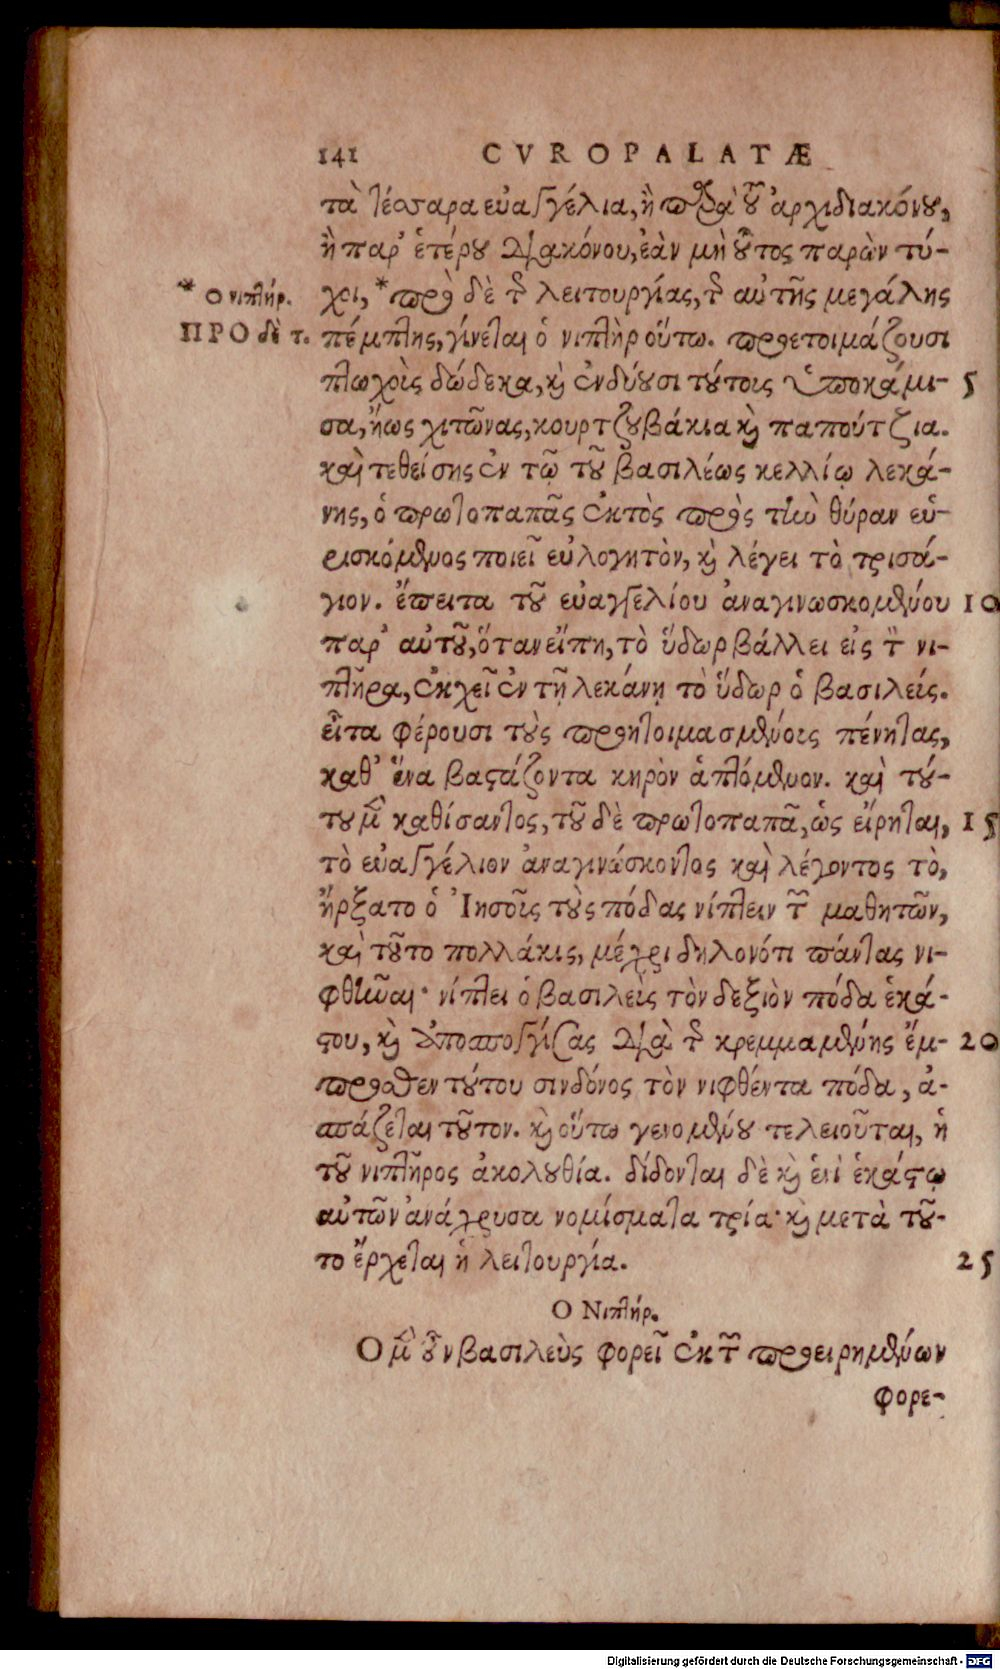 141 CVROPALATÆ
τὰ τέσσαρα εὐαγγέλια, ἢ παρὰ τοῦ ἀρχιδιακόνου,
ἢ παρ' ἑτέρου διακόνου, ἐὰν μὴ οὗτος παρὼν τύ-
* Ο νιπτήρ.
χοι, * πρὸ δὲ τῆς λειτουργίας, τῆς αὐτῆς μεγάλης
ΠΡΟ δὲ τ.
πέμπτης, γίνεται ὁ νιπτὴρ οὕτω. προετοιμάζουσι
πτωχοὺς δώδεκα, καὶ ἐνδύουσι τούτοις ὑποκάμι- 5
σα, ἤως χιτῶνας, κουρτζουβάκια καὶ παπούτζια.
καὶ τεθείσης ἐν τῷ τοῦ βασιλέως κελλίῳ λεκά-
νης, ὁ πρωτοπαπᾶς ἐκτὸς πρὸς τὴν θύραν εὑ-
ρισκόμενος ποιεῖ εὐλογητὸν, καὶ λέγει τὸ τρισά-
γιον. ἔπειτα τοῦ εὐαγγελίου ἀναγινωσκομένου 10
παρ' αὐτοῦ, ὅταν εἴπη, τὸ ὕδωρ βάλλει εἰς τὸν νι-
πτῆρα, ἐκχεῖ ἐν τῇ λεκάνῃ τὸ ὕδωρ ὁ βασιλεύς.
εἶτα φέρουσι τοὺς προητοιμασμένους πένητας,
καθ' ἕνα βαστάζοντα κηρὸν ἁπτόμενον. καὶ τού-
του μὲν καθίσαντος, τοῦ δὲ πρωτοπαπᾶ, ὡς εἴρηται, 15
τὸ εὐαγγέλιον ἀναγινώσκοντος καὶ λέγοντος τὸ,
ἤρξατο ὁ Ἰησοῦς τοὺς πόδας νίπτειν τῶν μαθητῶν,
καὶ τοῦτο πολλάκις, μέχρι δηλονότι πάντας νι-
φθῆναι· νίπτει ὁ βασιλεὺς τὸν δεξιὸν πόδα ἑκά-
στου, καὶ ἀποσπογγίσας διὰ τῆς κρεμμαμένης ἔμ- 20
προσθεν τούτου σινδόνος τὸν νιφθέντα πόδα, ἀ-
σπάζεται τοῦτον. καὶ οὕτω γενομένου τελειοῦται, ἡ
τοῦ νιπτῆρος ἀκολουθία. δίδονται δὲ καὶ ἑνὶ ἑκάστῳ
αὐτῶν ἀνάχρυσα νομίσματα τρία· καὶ μετὰ τοῦ-
το ἔρχεται ἡ λειτουργία. 25
Ο Νιπτήρ.
Ο μὲν οὖν βασιλεὺς φορεῖ ἐκ τῶν προειρημένων
φορε-
Digitalisierung gefördert durch die Deutsche Forschungsgemeinschaft - DFG